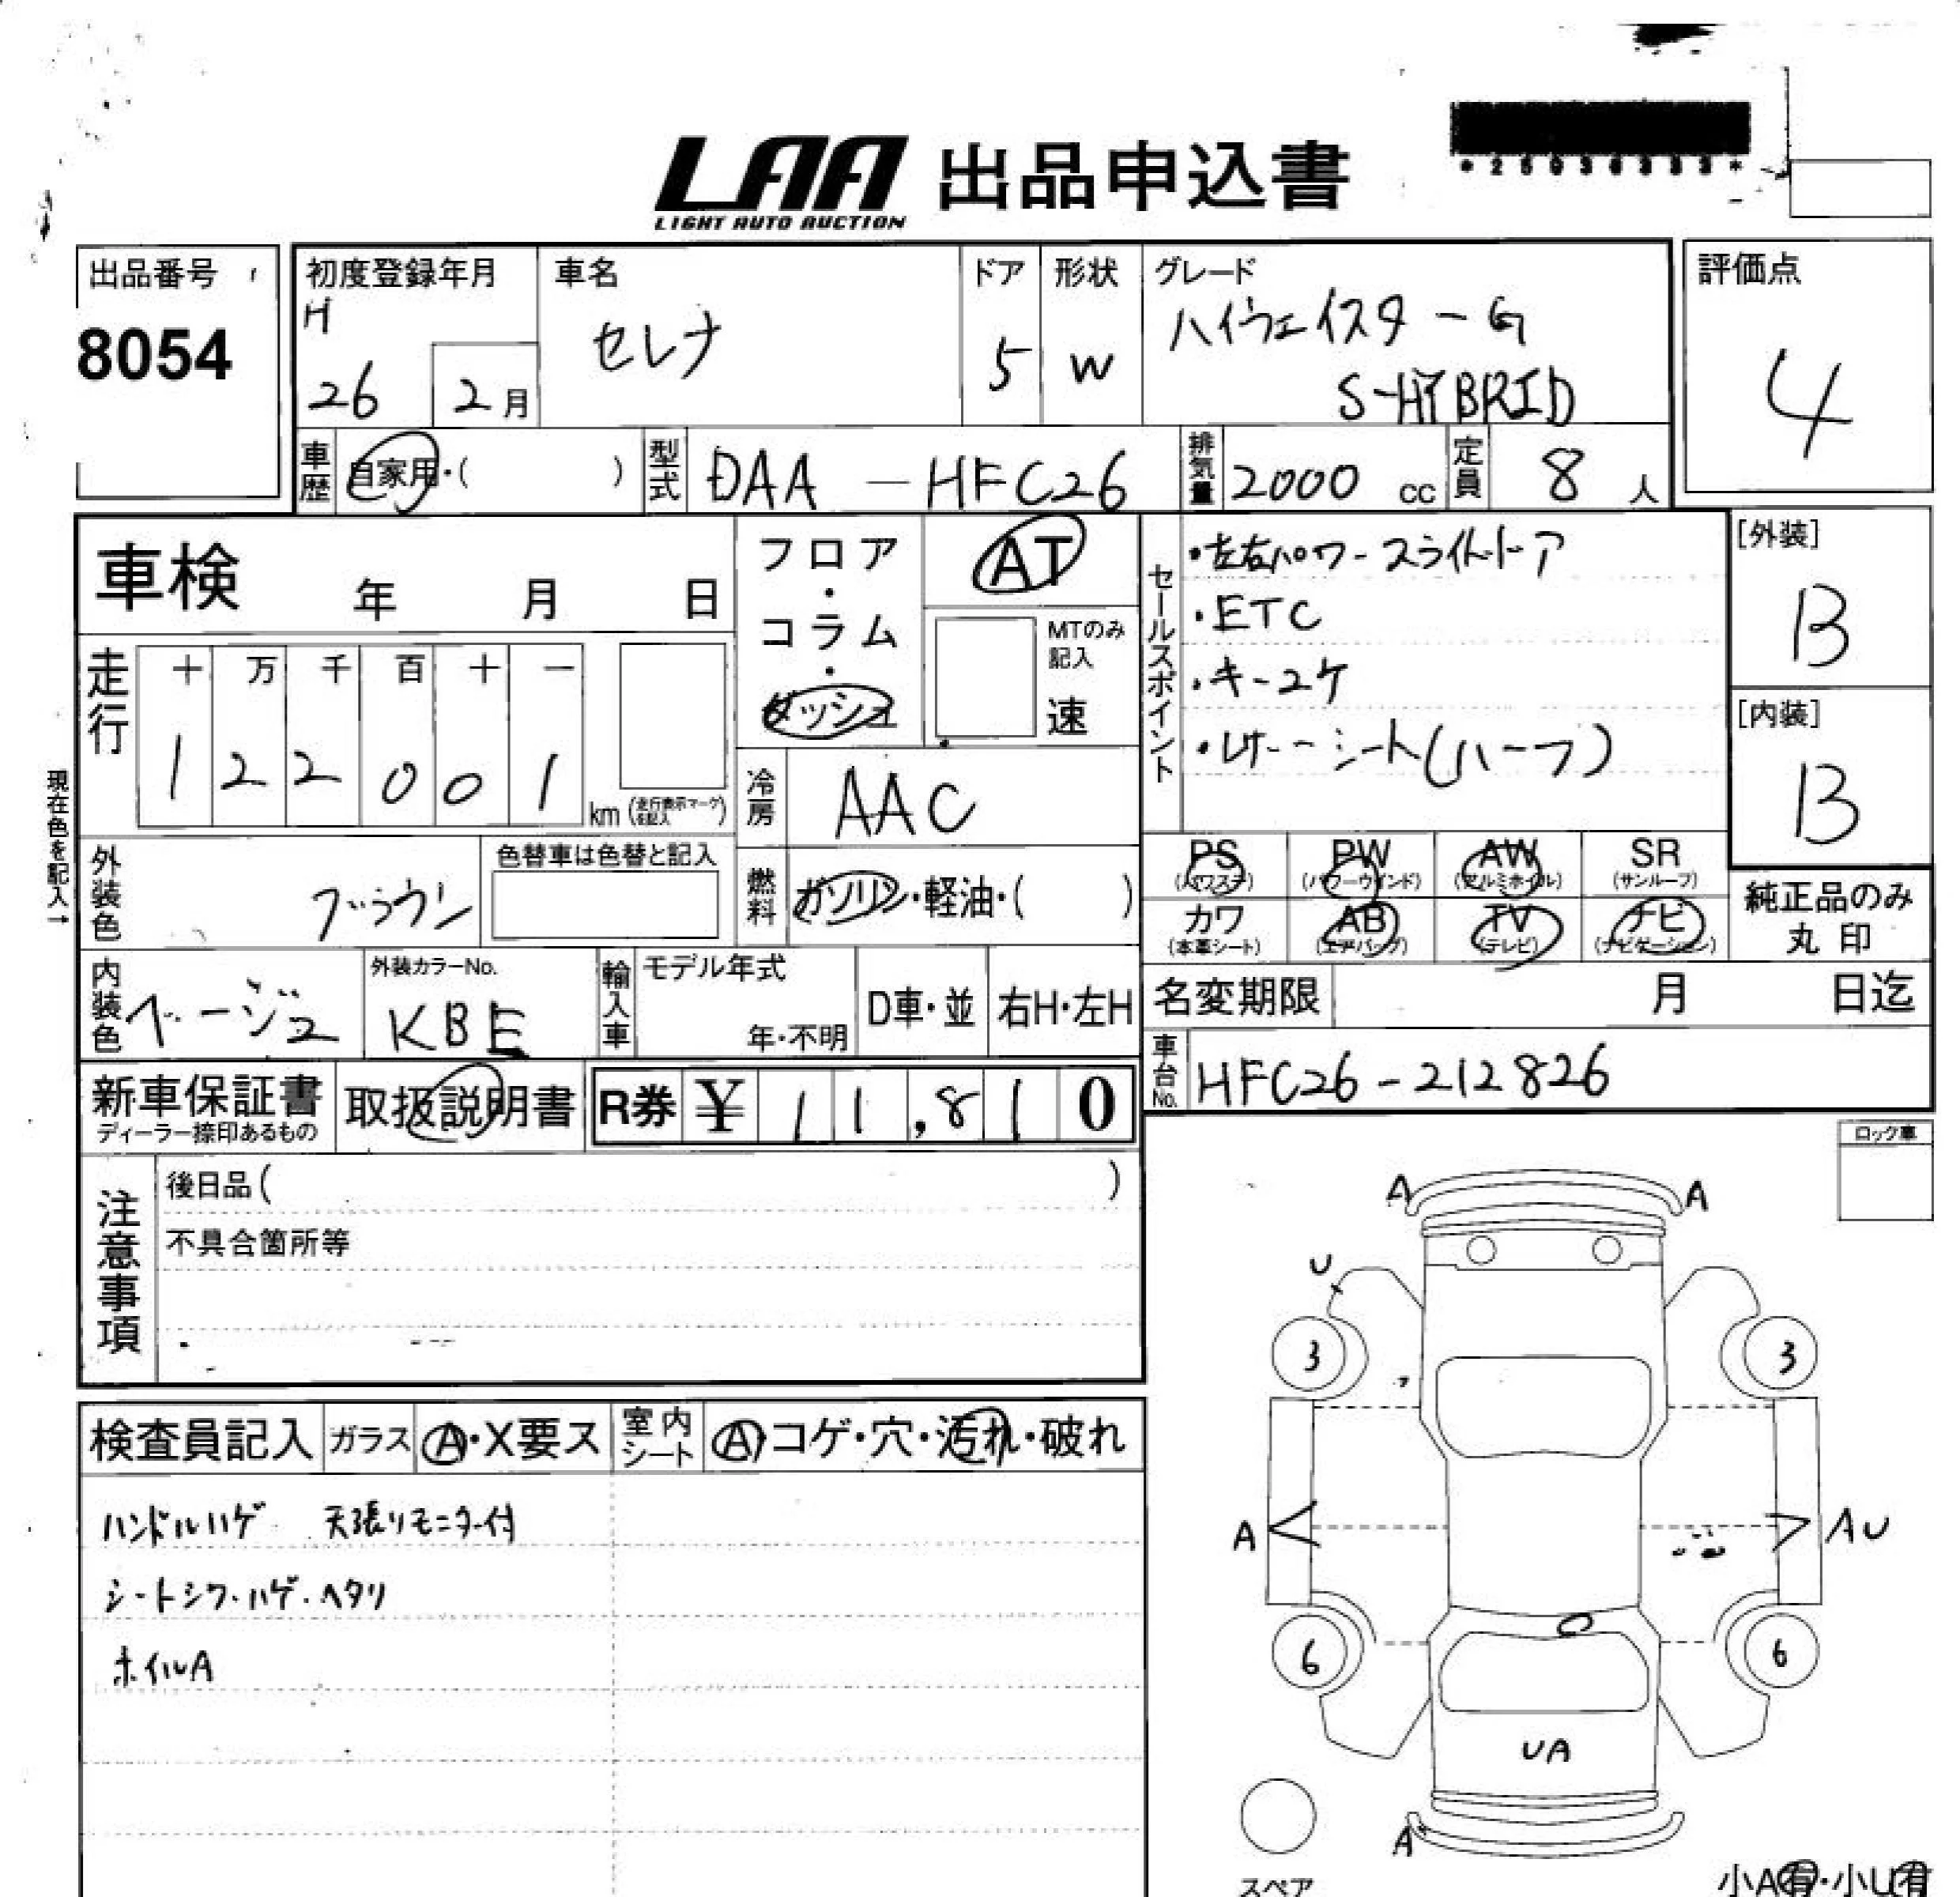 LAA 出品申込書
LIGHT AUTO AUCTION
出品番号
8054
初度登録年月
H
26 2月
車名
セレナ
ドア
5
形状
W
グレード
ハイウェイスターG
S-HYBRID
評価点
4
車歴 自家用・( )
型式 DAA-HFC26
排気量 2000 cc
定員 8 人
車検 年 月 日
フロア・コラム・ダッシュ
AT
MTのみ記入
速
セールスポイント
・左右パワースライドドア
・ETC
・キーコケ
・レザーシート(ハーフ)
[外装]
B
[内装]
B
走行
十 万 千 百 十 一
1 2 2 0 0 1 km (走行表示マークを記入)
現在色を記入→
冷房 AAC
外装色 ブラウン
色替車は色替と記入
燃料 ガソリン・軽油・( )
PS (パワステ)
PW (パワーウインド)
AW (アルミホイル)
SR (サンルーフ)
カワ (本革シート)
AB (エアバッグ)
TV (テレビ)
ナビ (ナビゲーション)
純正品のみ
丸印
内装色 ベージュ
外装カラーNo.
KBE
輸入車
モデル年式
年・不明
D車・並
右H・左H
名変期限 月 日迄
車台No. HFC26-212826
新車保証書
ディーラー捺印あるもの
取扱説明書
R券 ¥ 11,810
注意事項
後日品( )
不具合箇所等
ロック車
検査員記入
ガラス A・X要ス
室内シート A・コゲ・穴・汚れ・破れ
ハンドルハゲ 天張りモニター付
シートシワ・ハゲ・ヘタリ
ホイルA
A A
U
3 3
A AU
6 6
UA
A
スペア
小A有・小U有